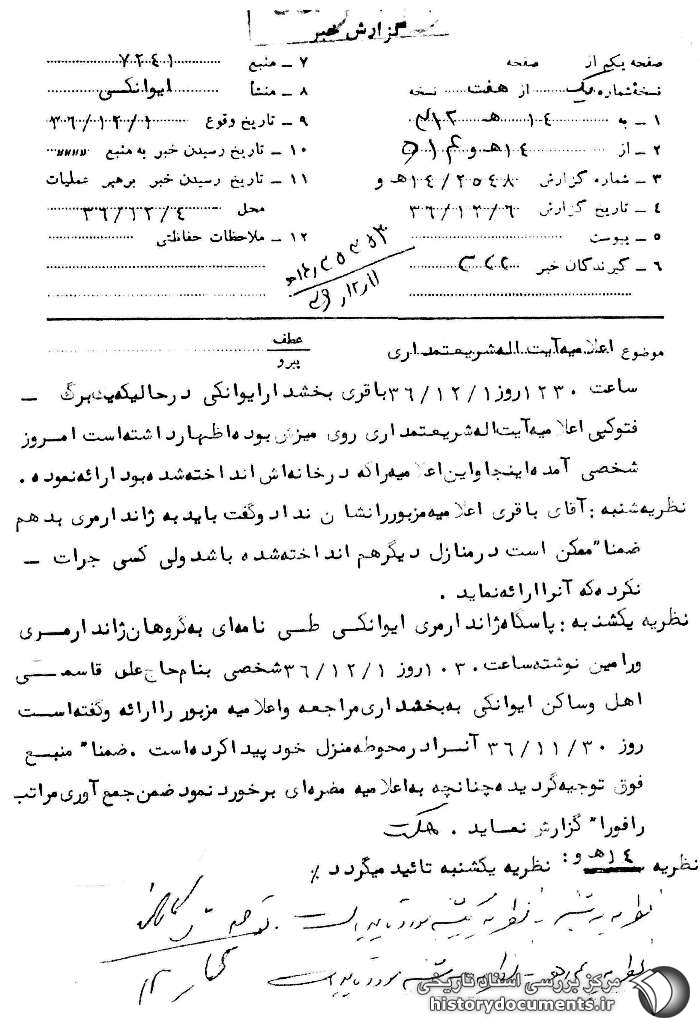 گزارش خبر
صفحه یکم از صفحه
نسخه شماره یک از هفت نسخه
۱ ـ به ۱۴ هـ ۳۱۲
۲ ـ از ۱۴ هـ و
۳ ـ شماره گزارش ۱۴/۲۵۴۸ هـ و
۴ ـ تاریخ گزارش ۳۶/۱۲/۶
۵ ـ پیوست
۶ ـ گیرندگان خبر
۷ ـ منبع ۷۲۴۱
۸ ـ منشأ ایوانکسی
۹ ـ تاریخ وقوع ۳۶/۱۲/۱
۱۰ ـ تاریخ رسیدن خبر به منبع 〃〃〃
۱۱ ـ تاریخ رسیدن خبر برهبر عملیات
محل ۳۶/۱۲/۴
۱۲ ـ ملاحظات حفاظتی
موضوع اعلامیه آیت اله شریعتمداری
عطف
پیرو
ساعت ۱۲۳۰ روز ۳۶/۱۲/۱ باقری بخشدار ایوانکی در حالیکه یک برگ ـ
فتوکپی اعلامیه آیت اله شریعتمداری روی میزش بوده اظهار داشته است امروز
شخصی آمده اینجا و این اعلامیه را که در خانه اش انداخته شده بود ارائه نموده .
نظریه شنبه : آقای باقری اعلامیه مزبور را نشان نداد و گفت باید به ژاندارمری بدهم
ضمنا" ممکن است در منازل دیگر هم انداخته شده باشد ولی کسی جرات ـ
نکرده که آنرا ارائه نماید .
نظریه یکشنبه : پاسگاه ژاندارمری ایوانکسی طی نامه ای به گروهان ژاندارمری
ورامین نوشته ساعت ۱۰۳۰ روز ۳۶/۱۲/۱ شخصی بنام حاج علی قاسمی
اهل و ساکن ایوانکی به بخشداری مراجعه و اعلامیه مزبور را ارائه و گفته است
روز ۳۶/۱۱/۳۰ آنرا در محوطه منزل خود پیدا کرده است . ضمنا" منبع
فوق توجیه گردیده چنانچه به اعلامیه مضره ای برخورد نمود ضمن جمع آوری مراتب
را فورا" گزارش نماید .
نظریه ۱۴ هـ و : نظریه یکشنبه تائید میگردد ٪
نظریه سه شنبه ـ نظریه یکشنبه مورد تایید است .
نظریه مورد تایید است
مرکز بررسی اسناد تاریخی
historydocuments.ir